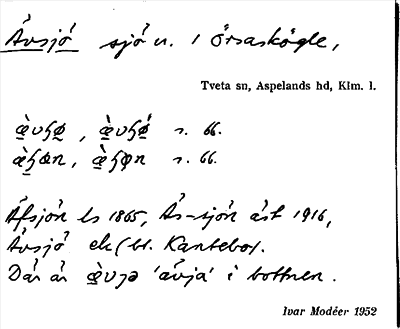 Åvsjö sjö n. i Örsaskögle,
Tveta sn, Aspelands hd, Klm. l.
s. 66.
s. 66.
Åfsjön ls 1865, Ås-sjön äst 1916,
Åvsjö ek (bl. Kantebo).
Där är 'ävja' i bottnen.
Ivar Modéer 1952